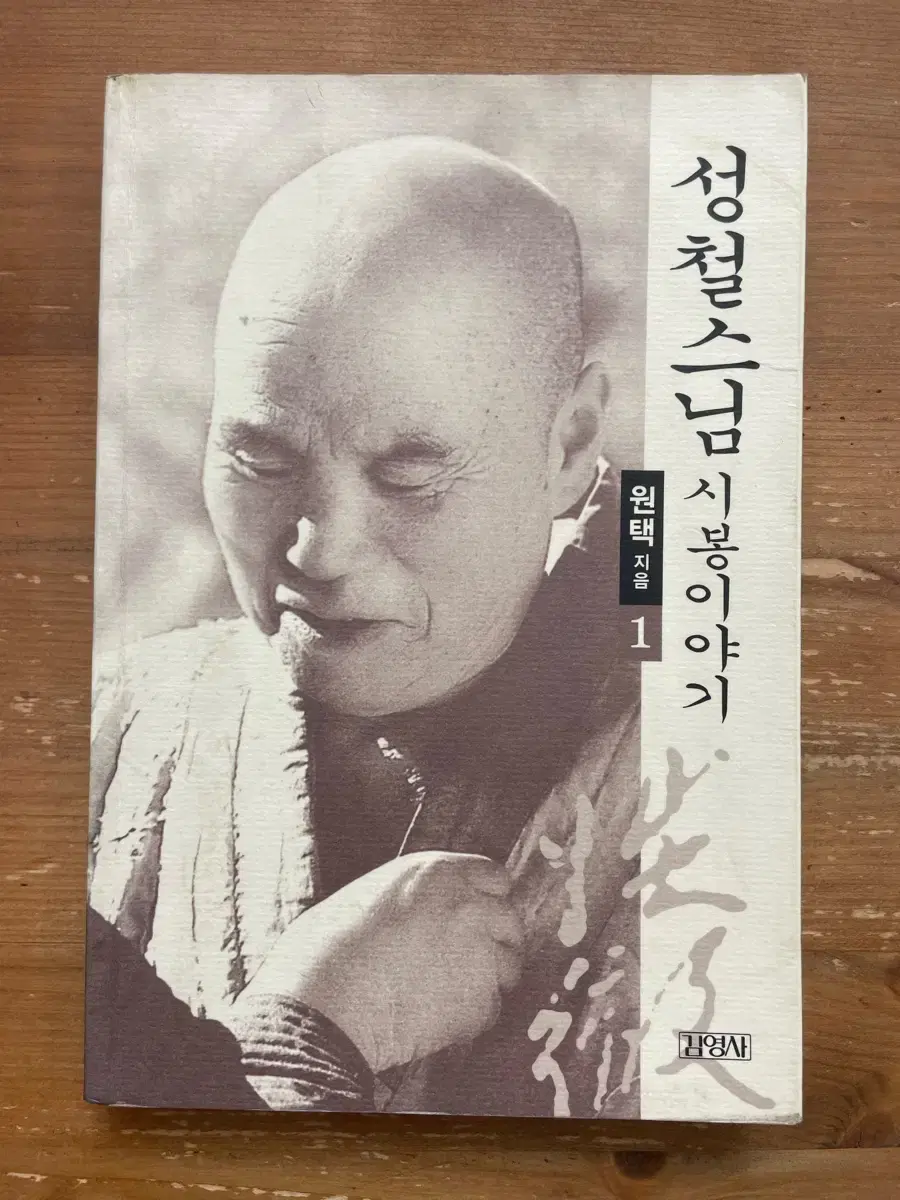 성철스님 시봉이야기
원택 지음
1
性徹
김영사